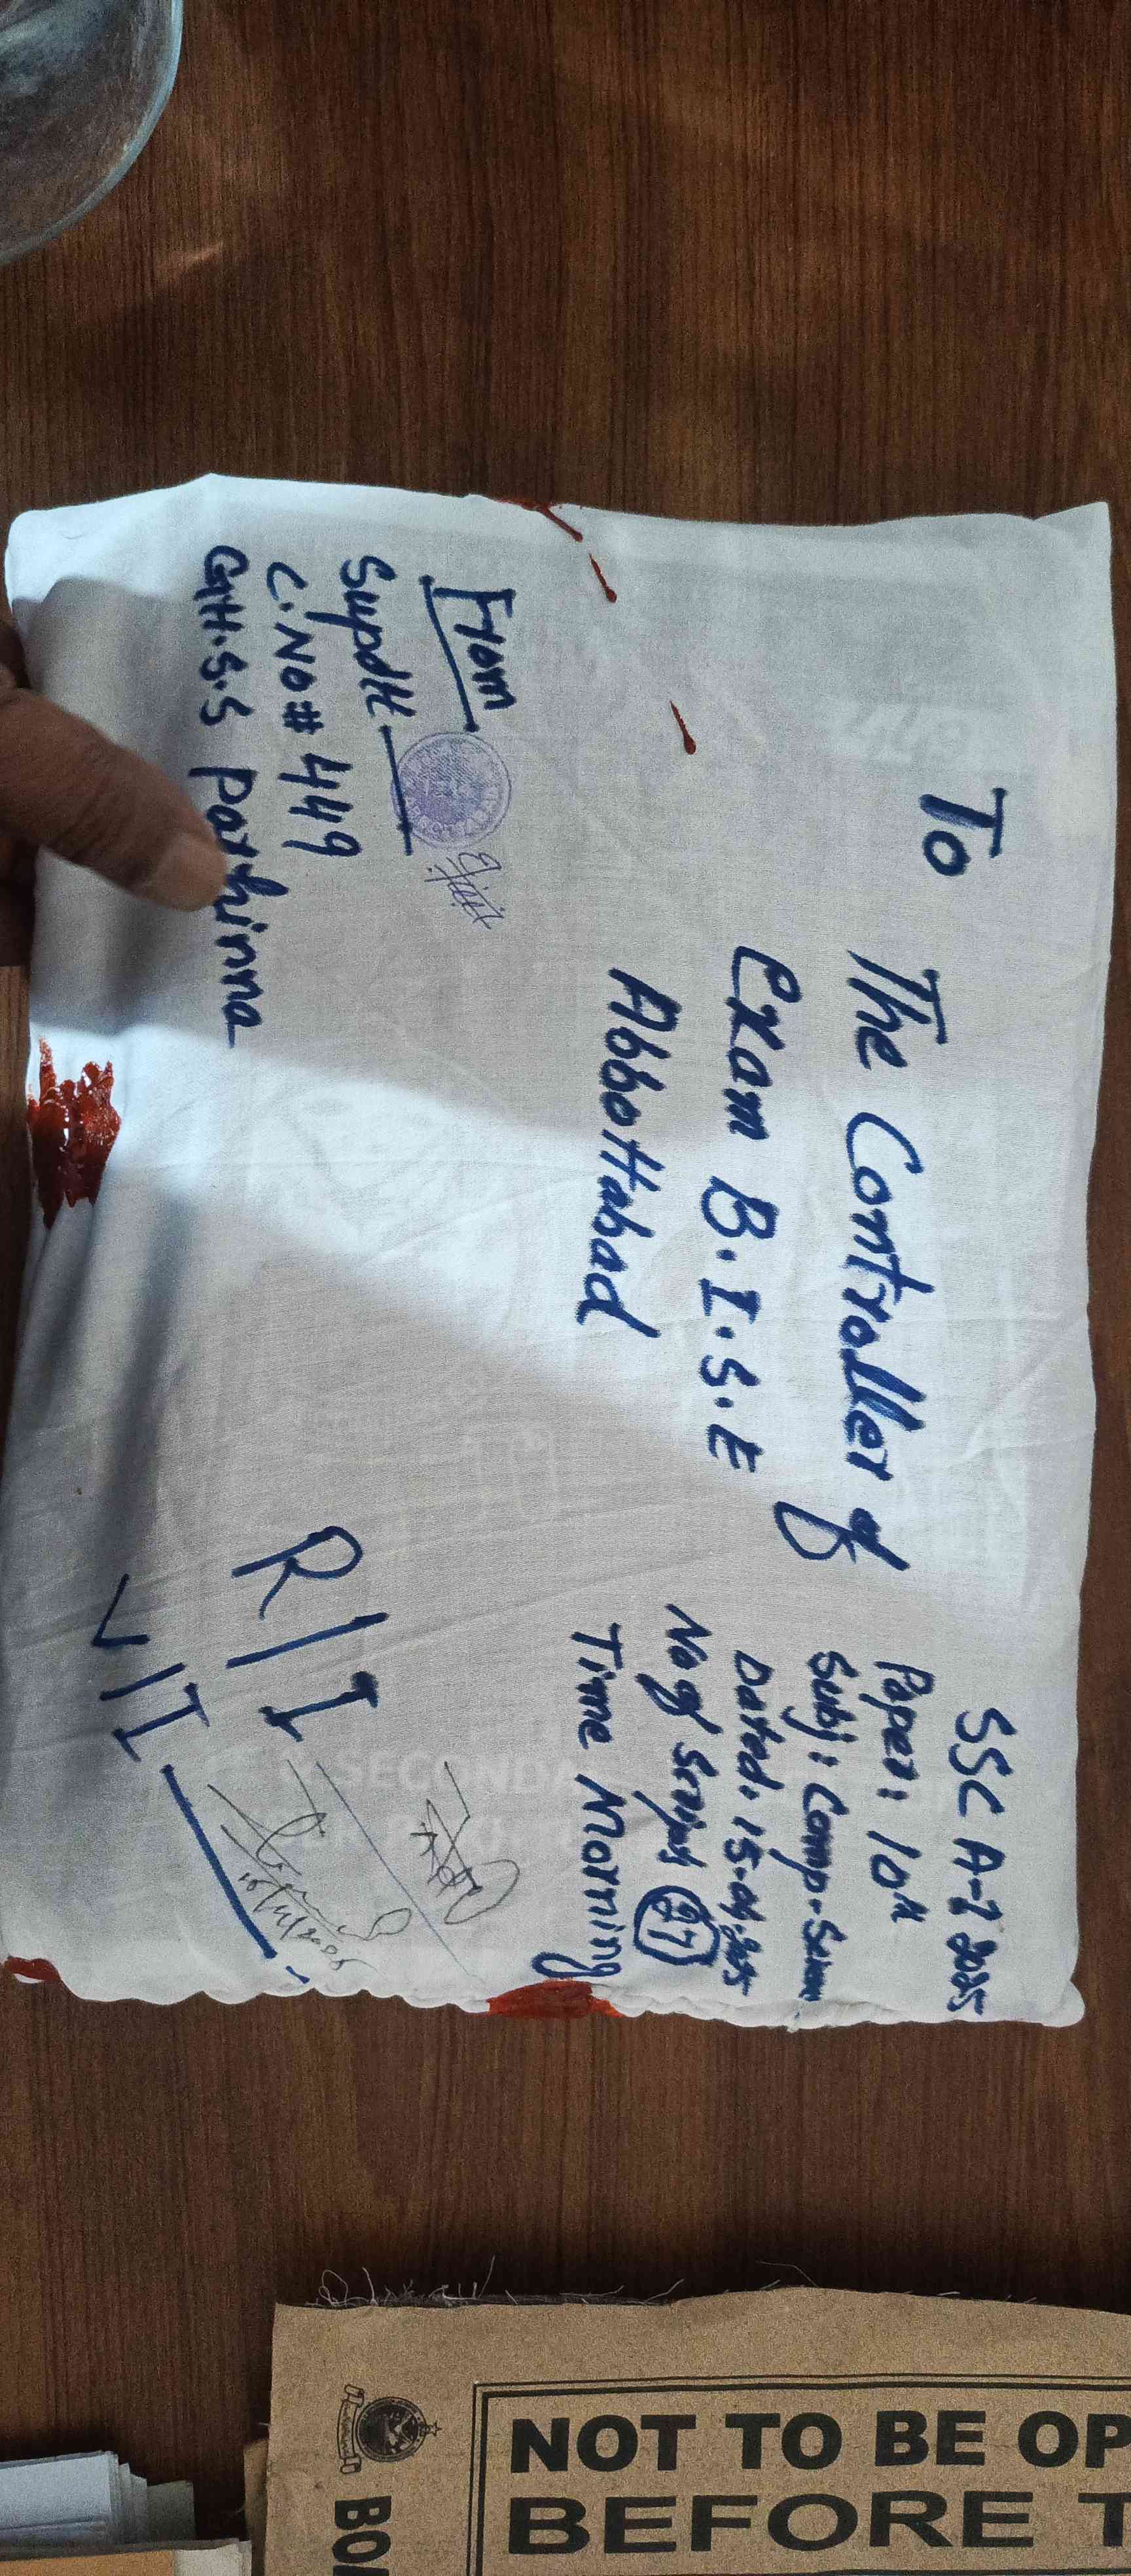 To
The Controller of
Exam B.I.S.E
Abbottabad
SSC A-I 2025
Paper: 10th
Subj: Comp-Scien
Dated: 15-04-2025
No of Scripts 27
Time Morning
From
Supdtt
C.No # 449
G.H.S.S Parhinna
R/I
V/I
SECONDA
NOT TO BE OP
BEFORE T
BO